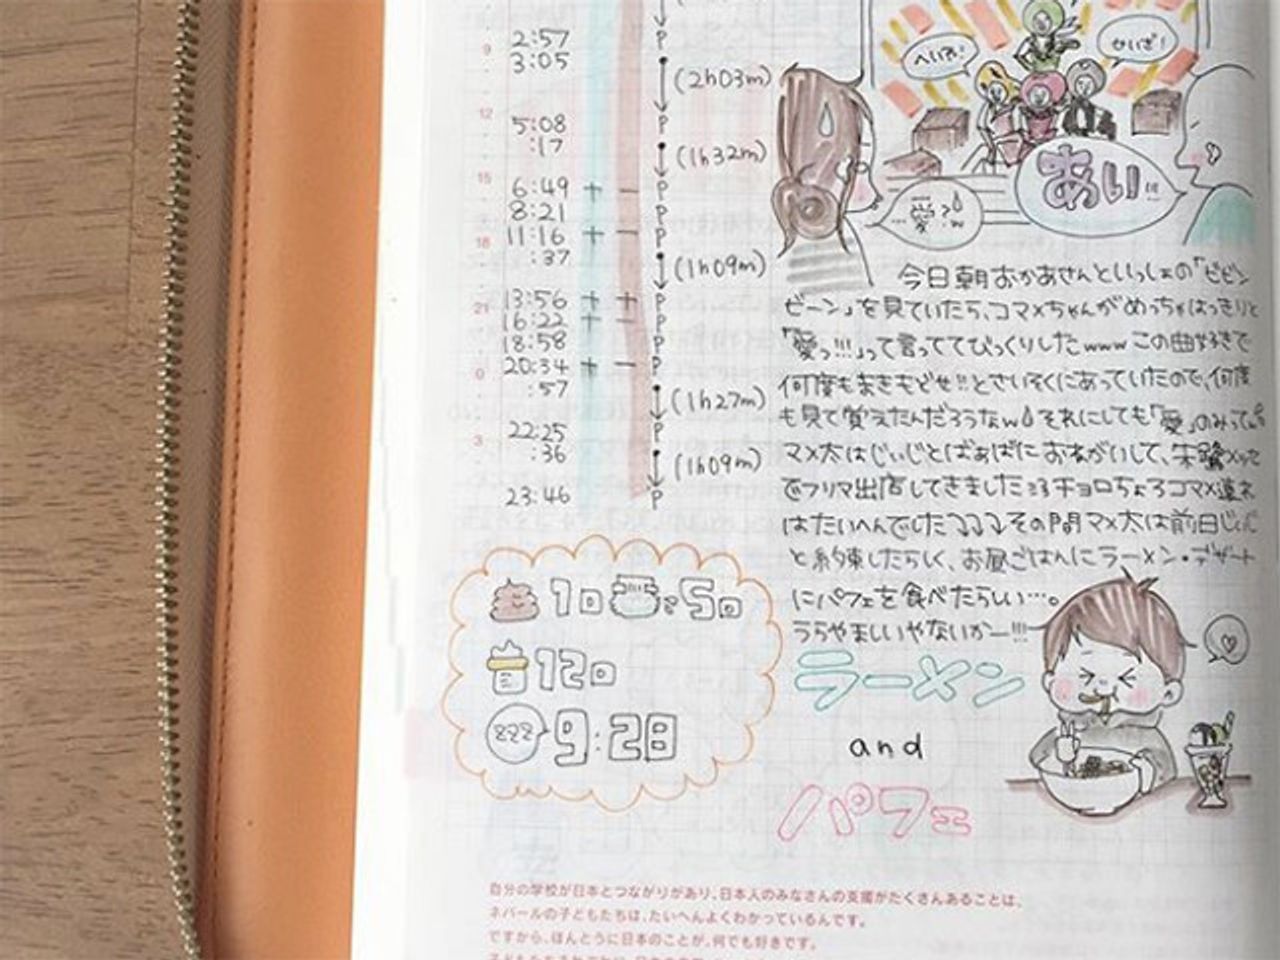 9
2:57
3:05
(2h03m)
12
5:08
:17
(1h32m)
15
6:49
8:21
18
11:16
:37
(1h09m)
21
13:56
16:22
18:58
0
20:34
:57
(1h27m)
3
22:25
:36
(1h09m)
23:46
あい!!!
…愛?w
今日朝おかあさんといっしょの「ビビン
ビーン」を見ていたら、コマメちゃんがめっちゃはっきりと
「愛っ!!!」って言っててびっくりしたwww この曲好きで
何度もまきもどせ!!とさいそくにあっていたので、何度
も見て覚えたんだろうなw それにしても「愛」のみって
マメ太はじぃじとばぁばにおねがいして、
でフリマ出店してきました チョロちょろコマメ連れ
はたいへんでした その間マメ太は前日じぃじ
と約束したらしく、お昼ごはんにラーメン・デザート
にパフェを食べたらしい…。
うらやましいやないかー!!!
1回 5回
12回
zzz 9:28
ラーメン
and
パフェ
自分の学校が日本とつながりがあり、日本人のみなさんの支援がたくさんあることは、
ネパールの子どもたちは、たいへんよくわかっているんです。
ですから、ほんとうに日本のことが、何でも好きです。